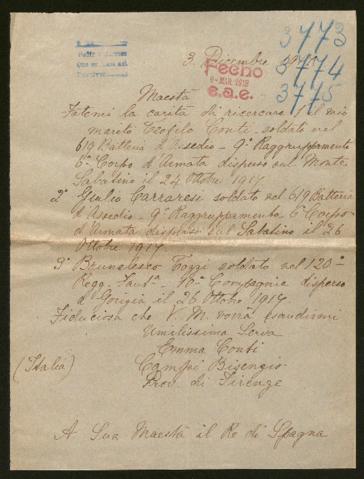 3773
3774
3775
3. Dicembre
Fecho
6 - MAR. 1918
e.a.e.
Maestà
Fatemi la carità di ricercare 1º il mio
marito Teofilo Conti soldato nel
619 Batteria d'Assedio - 9º Raggruppamento
6º Corpo d'Armata disperso sul Monte
Sabatino il 24 Ottobre 1917
2º Giulio Carraresi soldato nel 619 Batteria
d'Assedio - 9º Raggruppamento 6º Corpo
d'Armata disperso sul Sabatino il 26
Ottobre 1917
3º Brunelesco Poggi soldato nel 120º
Regg. Fant. 10ª Compagnia disperso
a Gorizia il 26 Ottobre 1917
Fiduciosa che V. M. vorrà esaudirmi
Umilissima Serva
Emma Conti
(Italia) Campi Bisenzio
Prov. di Firenze
A Sua Maestà il Re di Spagna